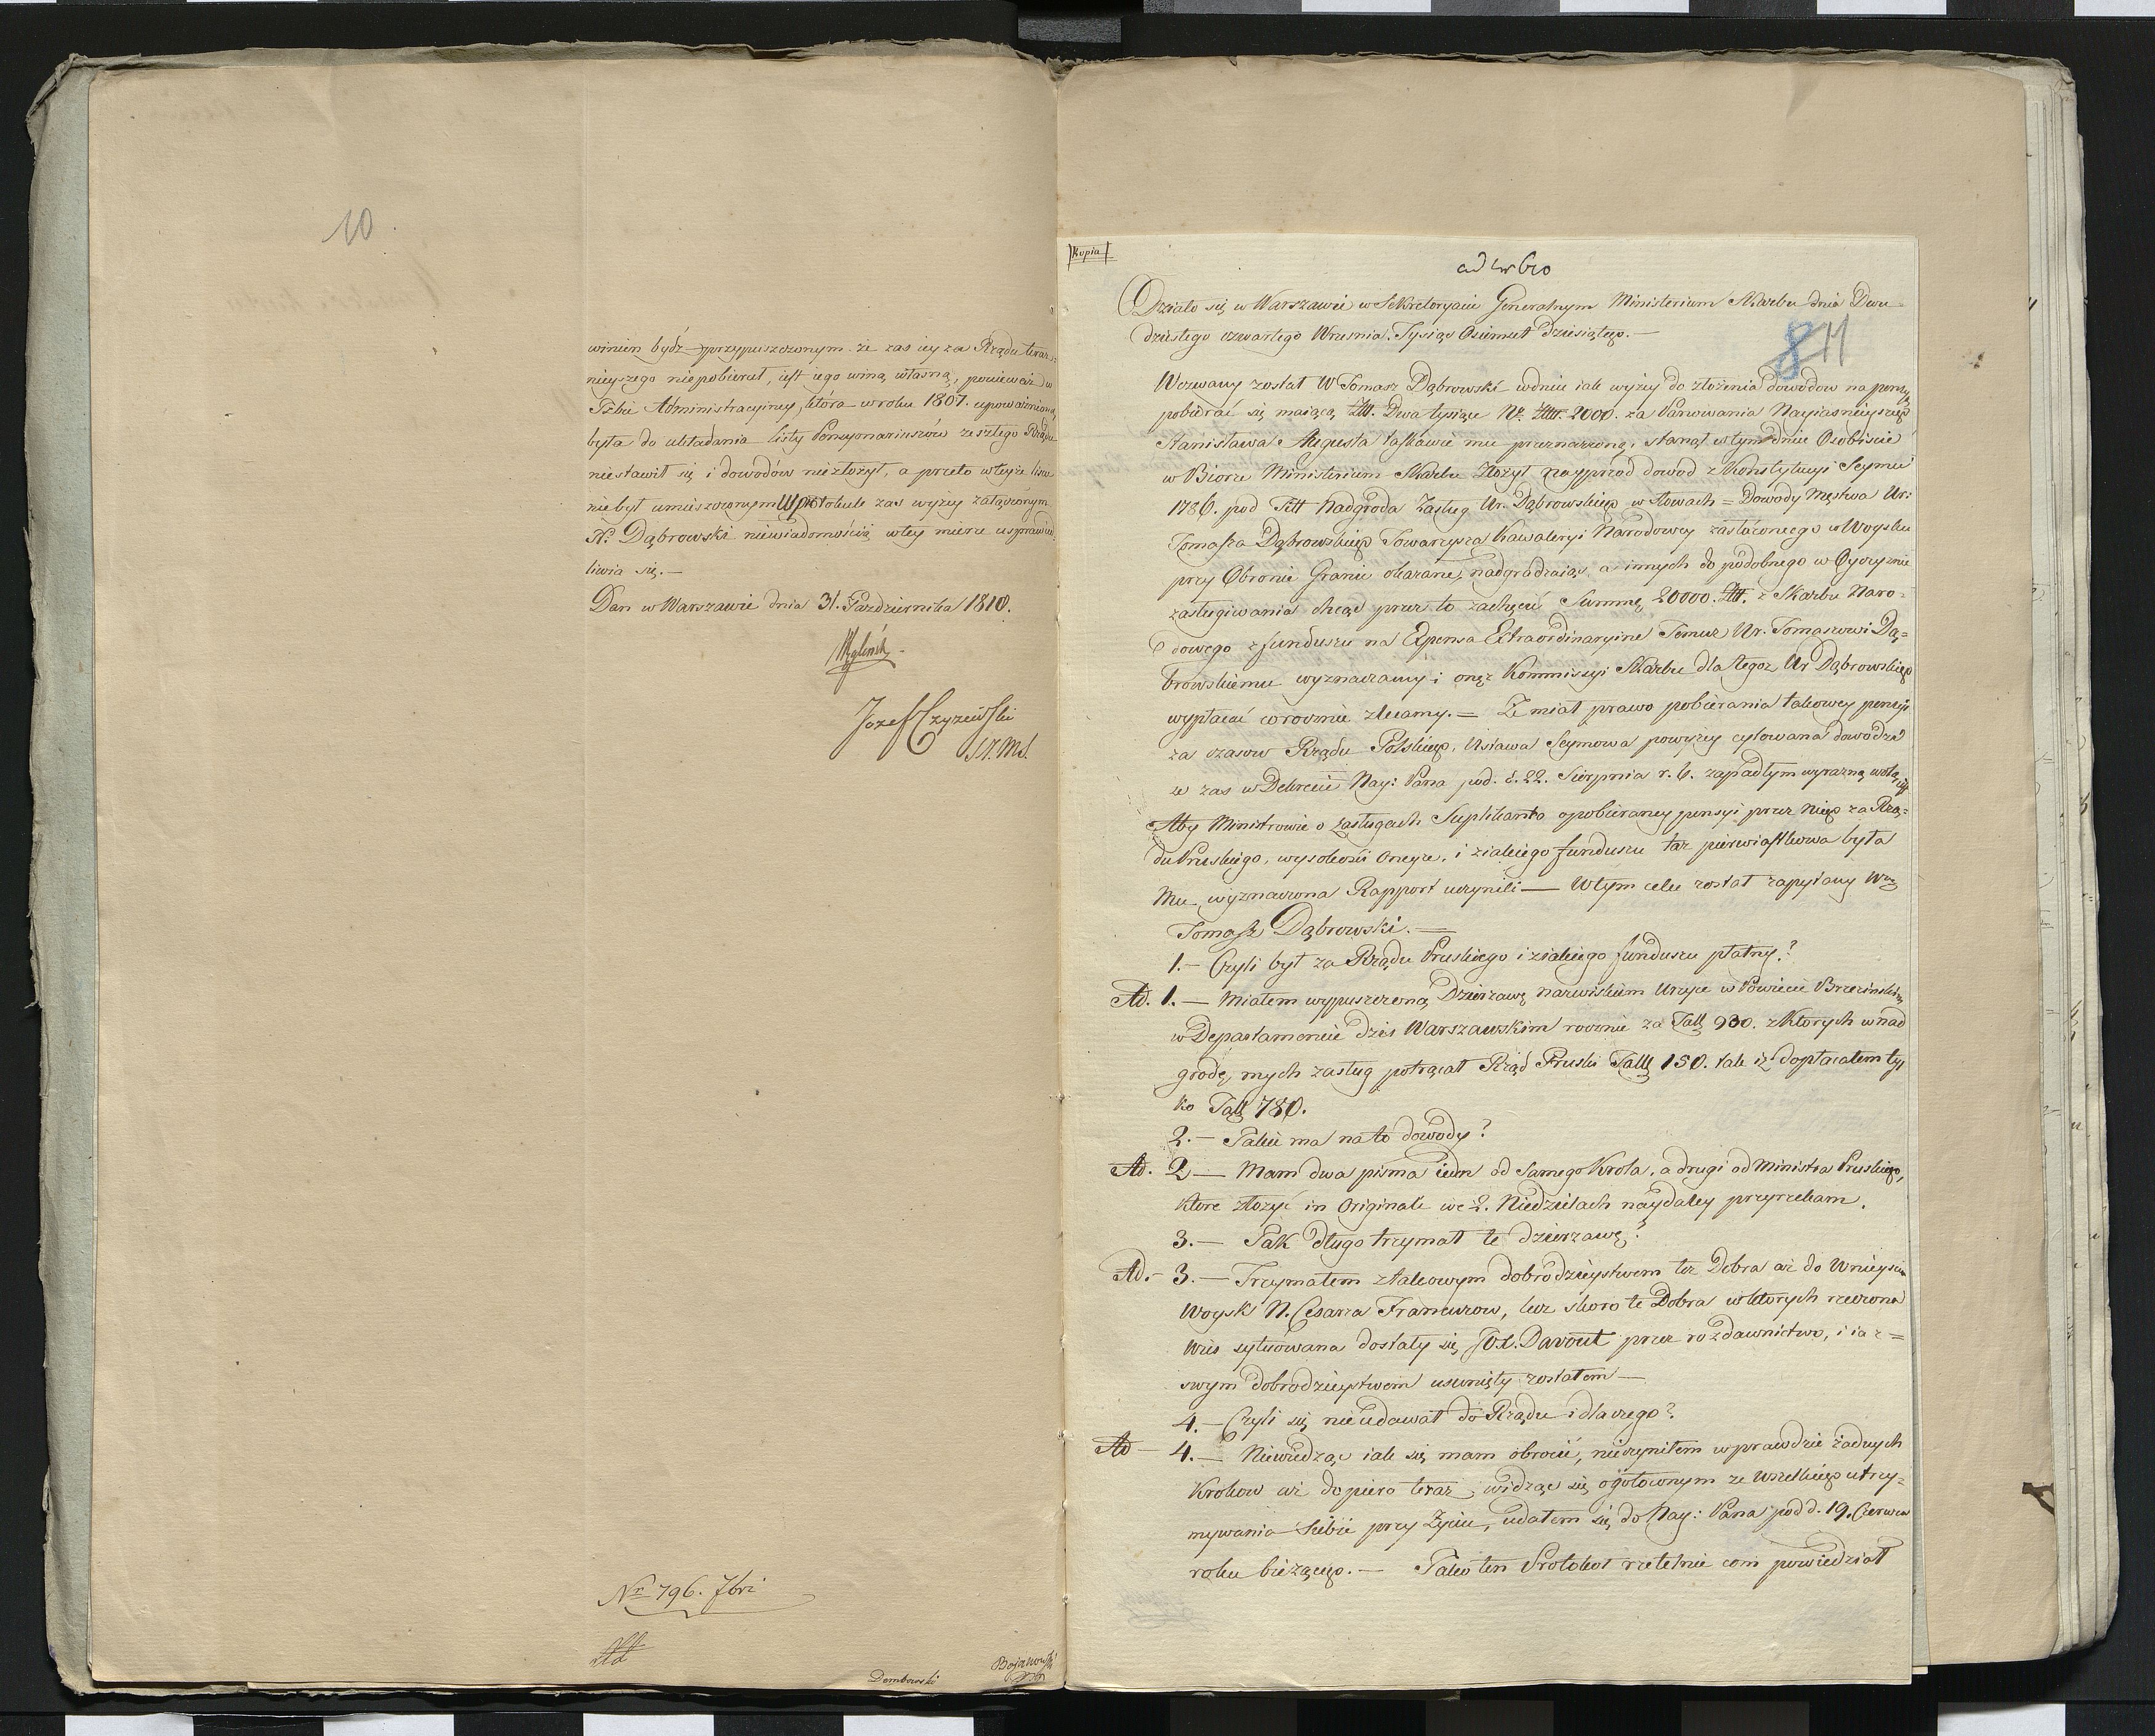 10
winien bydź przypuszczonym. że zas iey za Rządu teraz-
nieyszego niepobierał, iest iego winą własną, ponieważ w
Izbie Administracyiney, która w roku 1807. upoważnioną
była do układania listy Pensyonariuszów zeszłego Rządu
niestawił się i dowodów niezłożył, a przeto w teyże liscie
niebył umieszczonym w Protokule zas wyżey załączonym
N. Dąbrowski niewiadomością w tey mierze usprawied-
liwia się.—
Dan w Warszawie dnia 31. Października 1810.
Węgleński
Jozef Czyżewski
Nr 796. 7bri
Dembowski
Bojanowski
Kopia
8 11
Działo się w Warszawie w Sekretoryacie Generalnym Ministerium Skarbu dnia Dwu-
dziestego czwartego Wrzesnia. Tysiąc Osiemset Dziesiątego.—
Wezwany został W Tomasz Dąbrowski w dniu iak wyżey do złożenia dowodow na pensyą
pobierać się maiącą Dwa tysiące 2000. za Panowania Nayiasnieyszego
Stanisława Augusta łaskawie mu przeznaczoną, stanął w tym dniu Osobiscie
w Biorze Ministerium Skarbu Złożył nayprzod dowod z Konstytucyi Seymu
1786. pod Titt Nadgroda Zasług Ur. Dąbrowskiego w słowach = Dowody Męstwa Ur:
Tomasza Dąbrowskiego Towarzysza Kawaleryi Narodowey zasłużonego w Woysku
przy Obronie Granic okazane, nadgradzaiąc, a innych do podobnego w Oyczyznie
zasługiwania chcąc przez to zachęcić Summę 20000. z Skarbu Naro-
dowego z funduszu na Expensa Extraordinaryine Temuz Ur. Tomaszowi Dą=
browskiemu wyznaczamy i onęż Kommissyi Skarbu dla tegoż Ur Dąbrowskiego
wypłacać corocznie zlecamy.= Że miał prawo pobierania takowey pensyi
za czasow Rządu Polskiego, Ustawa Seymowa powyżey cytowana dowodzi
że zas w Dekrecie Nay: Pana pod. d. 22. Sierpnia r. b. zapadłym wyrazną wolą iest
Aby Ministrowie o zasługach Suplikanta o pobieraney pensyi przez Niego za Rzą=
du Pruskiego, wysokosci oneyże, i z iakiego funduszu taż pierwiastkowa była
Mu wyznaczona Rapport uczynili— W tym celu został zapytany Wny
Tomasz Dąbrowski.—
1.— Czyli był za Rządu Pruskiego i z iakiego funduszu płatny?
Ad. 1.— Miałem wypuszczoną Dzierzawę nazwiskiem Uryce w Powiecie Brzezinskim
w Departamencie dzis Warszawskim rocznie za Tall 930. z ktorych w nad
grodę mych zasług potrącał Rząd Pruski Tall 150. tak iż dopłacałem tyl
ko Tall 780.
2.— Jakie ma na to dowody?
Ad. 2— Mam dwa pisma ieden od Samego Krola, a drugi od Ministra Pruskiego,
ktore złożyć in Originali we 2. Niedzielach naydaley przyrzekam.
3.— Jak długo trzymał te dzierzawę?
Ad.— 3.— Trzymałem z takowym dobrodzieystwem też Dobra aż do Wniyscia
Woysk N. Cesarza Francuzow, lecz skoro te Dobra w ktorych rzeczona
Wies sytuowana dostały się JO. X. Davout przez rozdawnictwo, i ia z=
swym dobrodzieystwem usunięty zostałem—
4.— Czyli się nie udawał do Rządu i dla czego?
Ad— 4.— Niewiedząc iak się mam obrocić, nieczyniłem wprawdzie żadnych
Krokow aż dopiero teraz, widząc się ogołoconym ze wszelkiego utrzy=
mywania Siebie przy Życiu, udałem się do Nay: Pana pod d. 19. Czerwca
roku bieżącego.— Jako ten Protokol rzetelnie com powiedział